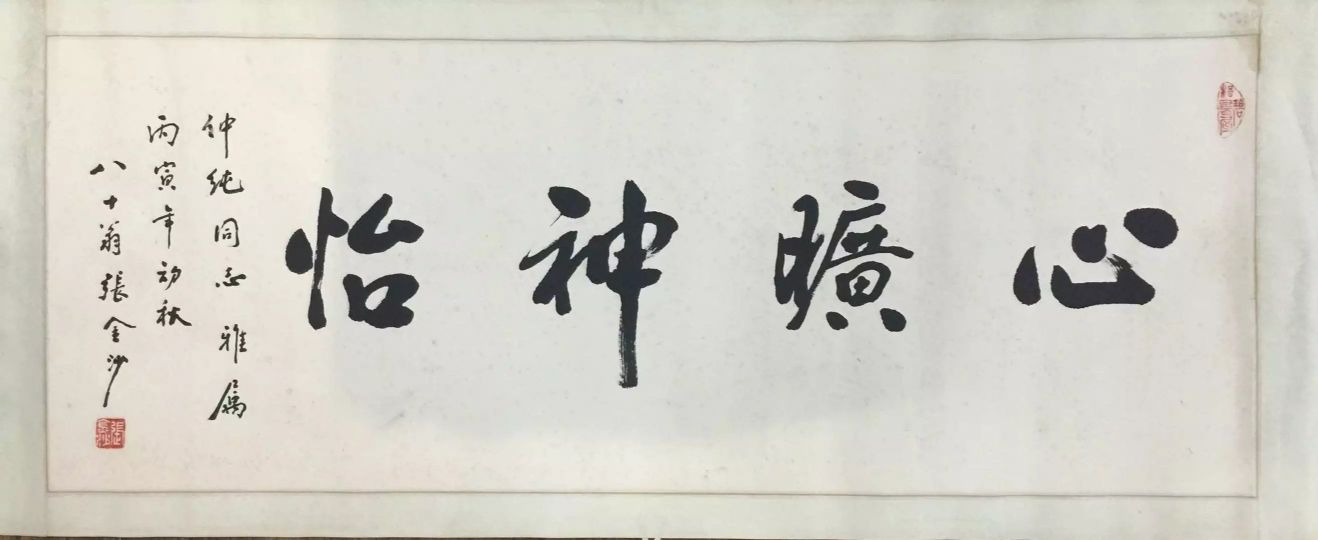 心曠神怡
仲纯同志雅属
丙寅年初秋
八十翁張金沙